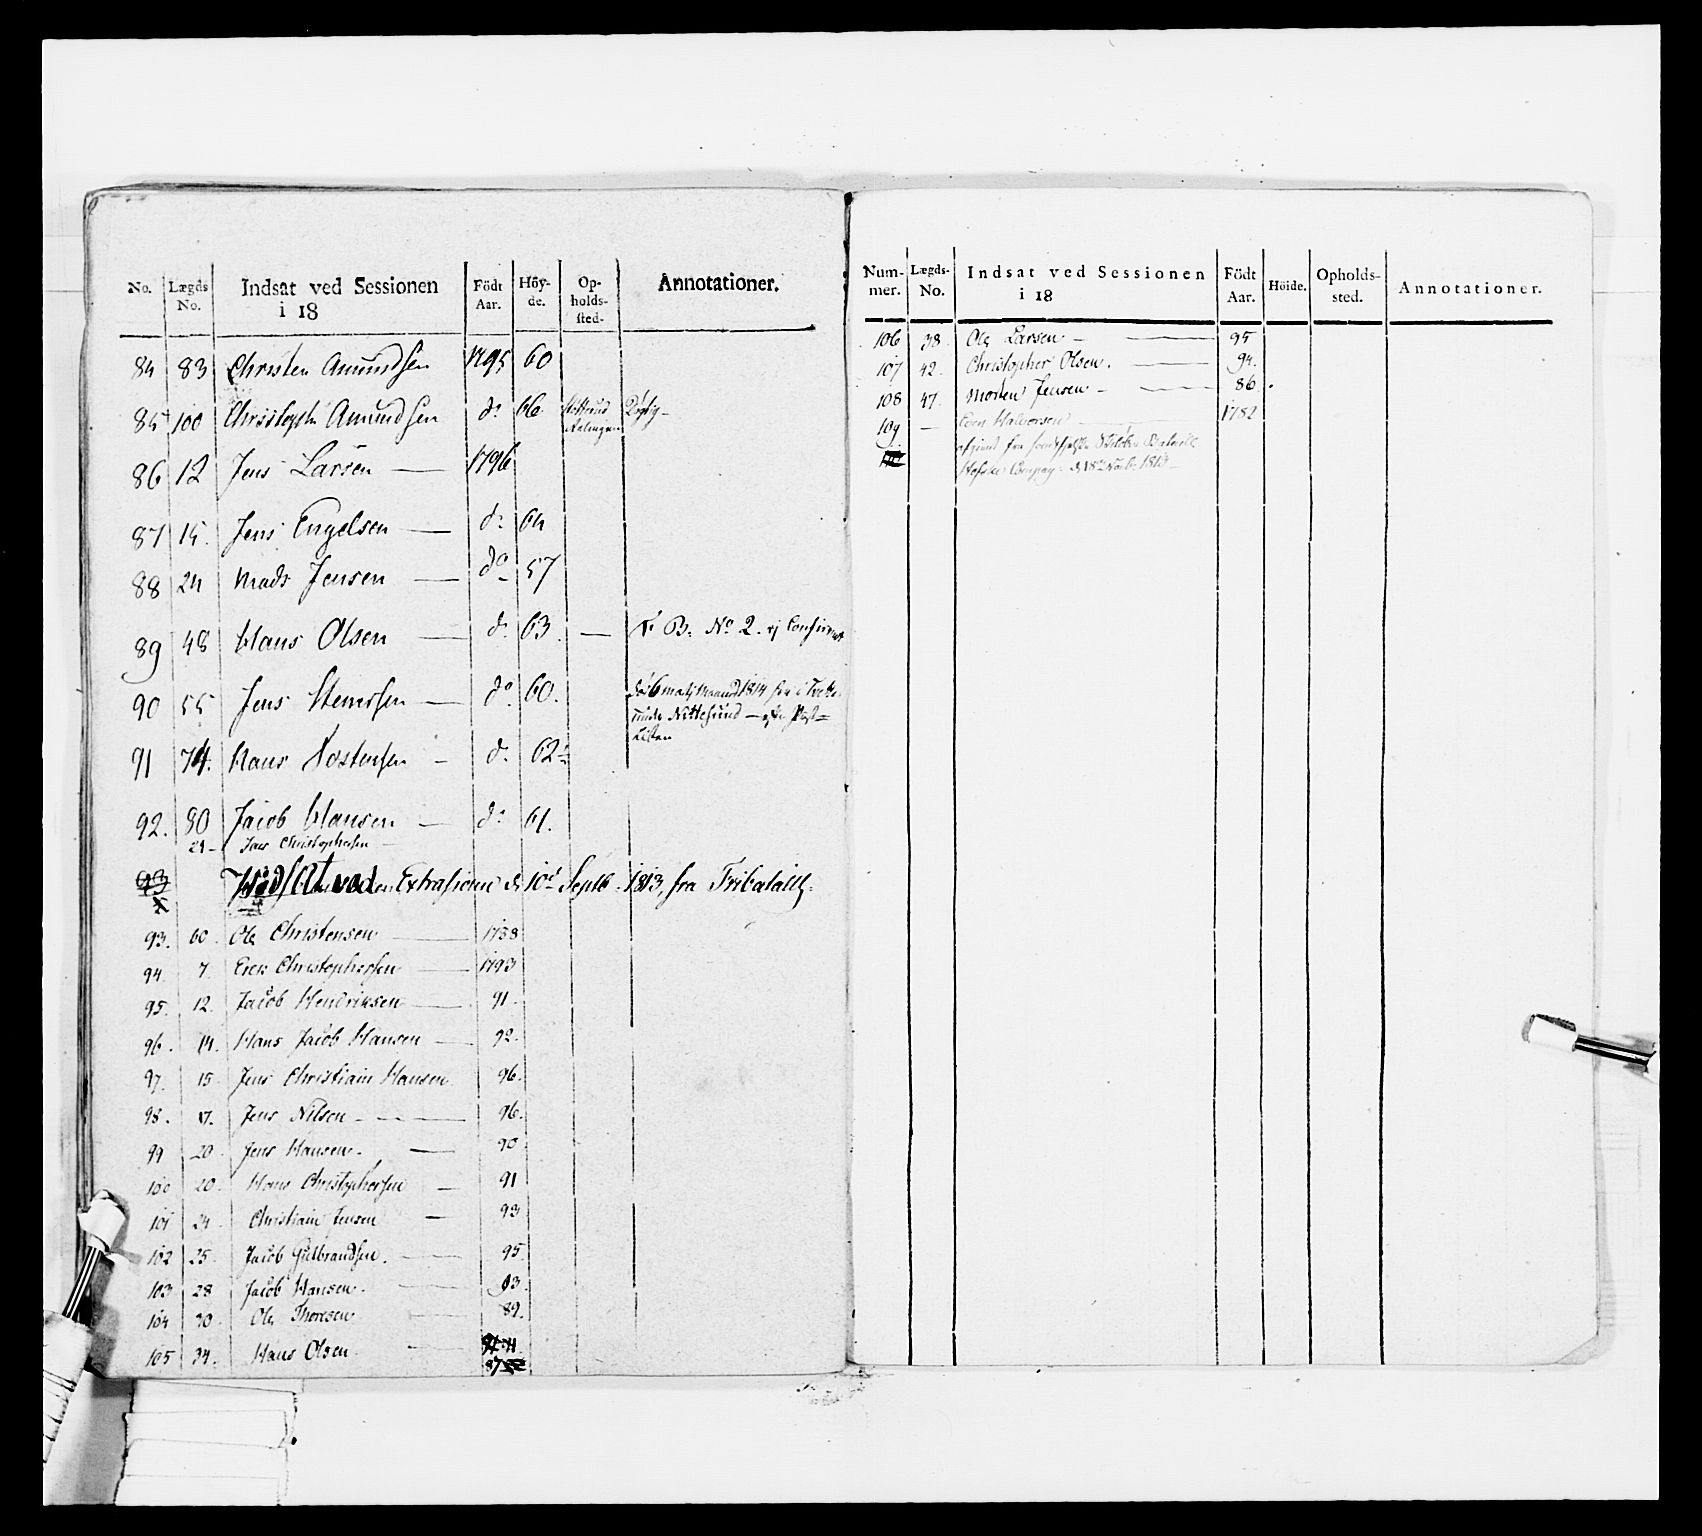 No. Lægds No. Indsat ved Sessionen i 18 Födt Aar. Höyde. Opholdssted. Annotationer.
84 83 Christen Amundsen 1795 60
85 100 Christoph Amundsen do 66
86 12 Jens Larsen — 1796
87 15. Jens Engelsen — do 64
88 24 Mads Jensen — do 57
89 48 Hans Olsen — do 63. — B. No 2. ej Confirmt
90 55 Jens — do 60. 1814
91 74. Hans Tostensen — do 62
92. 80 Jacob Hansen — do 61.
21 – Christophersen
93 Indsat ved Extrasession d 10d Septb. 1813, fra
93. 60. Ole Christensen — 1788
94 7. Erek Christophersen — 1793
95. 12. Jacob Hendriksen — 91.
96. 14. Hans Jacob Hansen — 92.
97. 15. Jens Christian Hansen 96.
98. 17. Jens Nilsen — 96.
99 20. Jens Hansen. — 90
100 20. Hans Christophersen — 91
101 24. Christian Jensen — 93
102 25. Jacob Gulbrandsen. — 95.
103 28 Jacob Hansen. — 93.
104 30. Ole Thoresen — 89.
105 34. Hans Olsen. — 87
Nummer. Lægds-No. Indsat ved Sessionen i 18 Födt Aar. Höide. Opholdssted. Annotationer.
106 38. Ole Larsen — 95
107 42. Christopher Olsen. — 94.
108 47. Morten Jensen — 86.
109 — Halvorsen 1782
fra
1813